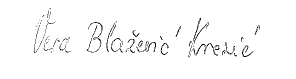 Vera Blaženić Knezić